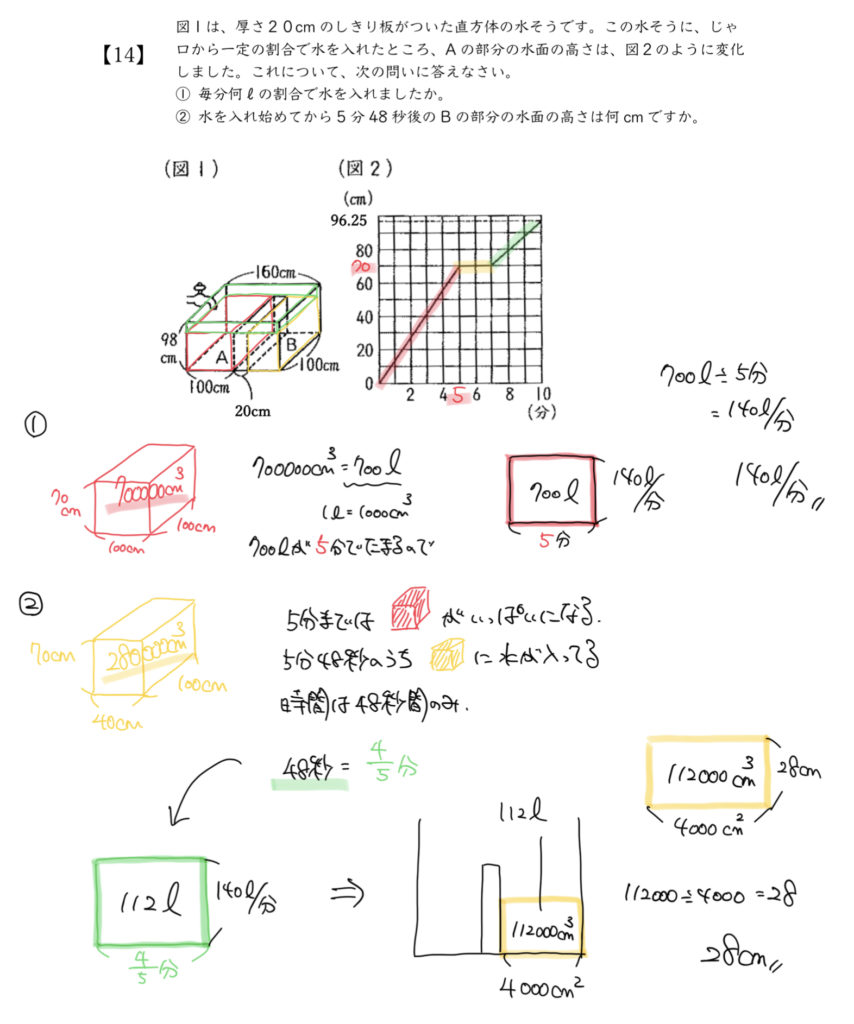 【14】
図1は、厚さ20cmのしきり板がついた直方体の水そうです。この水そうに、じゃ
口から一定の割合で水を入れたところ、Aの部分の水面の高さは、図2のように変化
しました。これについて、次の問いに答えなさい。
① 毎分何ℓの割合で水を入れましたか。
② 水を入れ始めてから5分48秒後のBの部分の水面の高さは何cmですか。
(図1)
160cm
98
cm
A
B
100cm
100cm
20cm
(図2)
(cm)
96.25
80
70
60
40
20
0
2
4
5
6
8
10
(分)
700ℓ÷5分
=140ℓ/分
①
70
cm
700000cm³
100cm
100cm
700000cm³=700ℓ
1ℓ=1000cm³
700ℓが5分でたまるので
700ℓ
140ℓ/分
5分
140ℓ/分
②
70cm
280000cm³
100cm
40cm
5分までは がいっぱいになる.
5分48秒のうち に水が入ってる
時間は48秒間のみ.
48秒=4/5分
112ℓ
140ℓ/分
4/5分
⇒
112ℓ
112000cm³
4000cm²
112000cm³
28cm
4000cm²
112000÷4000=28
28cm